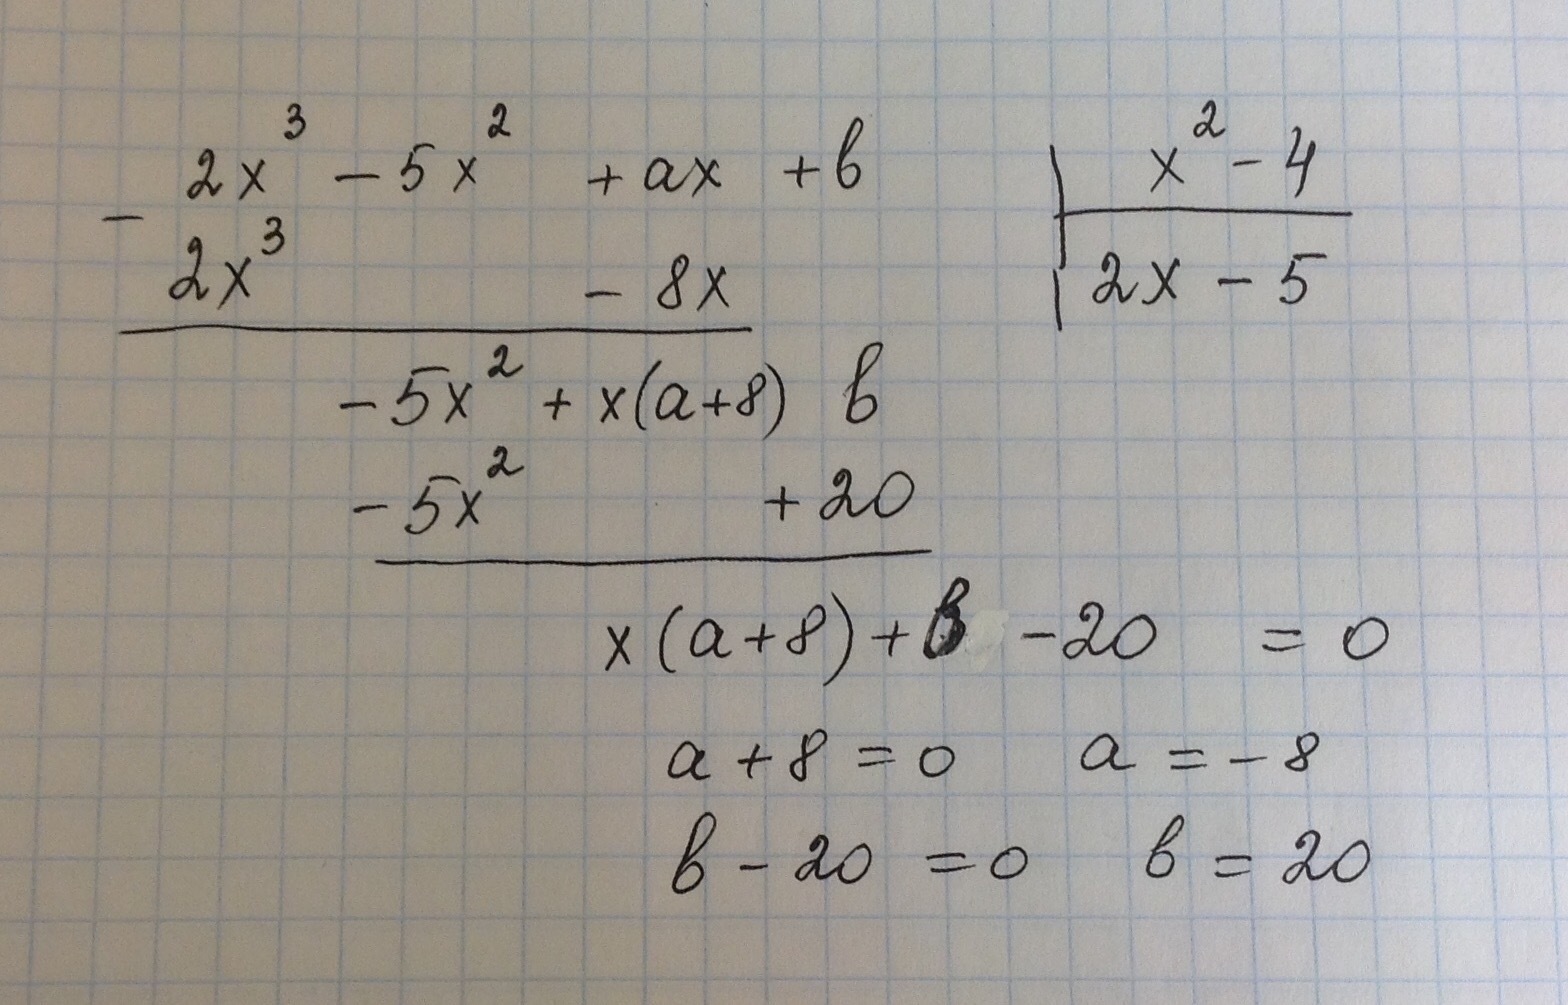 2x³ - 5x² + ax + b | x² - 4
- 2x³ - 8x | 2x - 5
-5x² + x(a+8) b
-5x² + 20
x(a+8) + b - 20 = 0
a + 8 = 0 a = -8
b - 20 = 0 b = 20